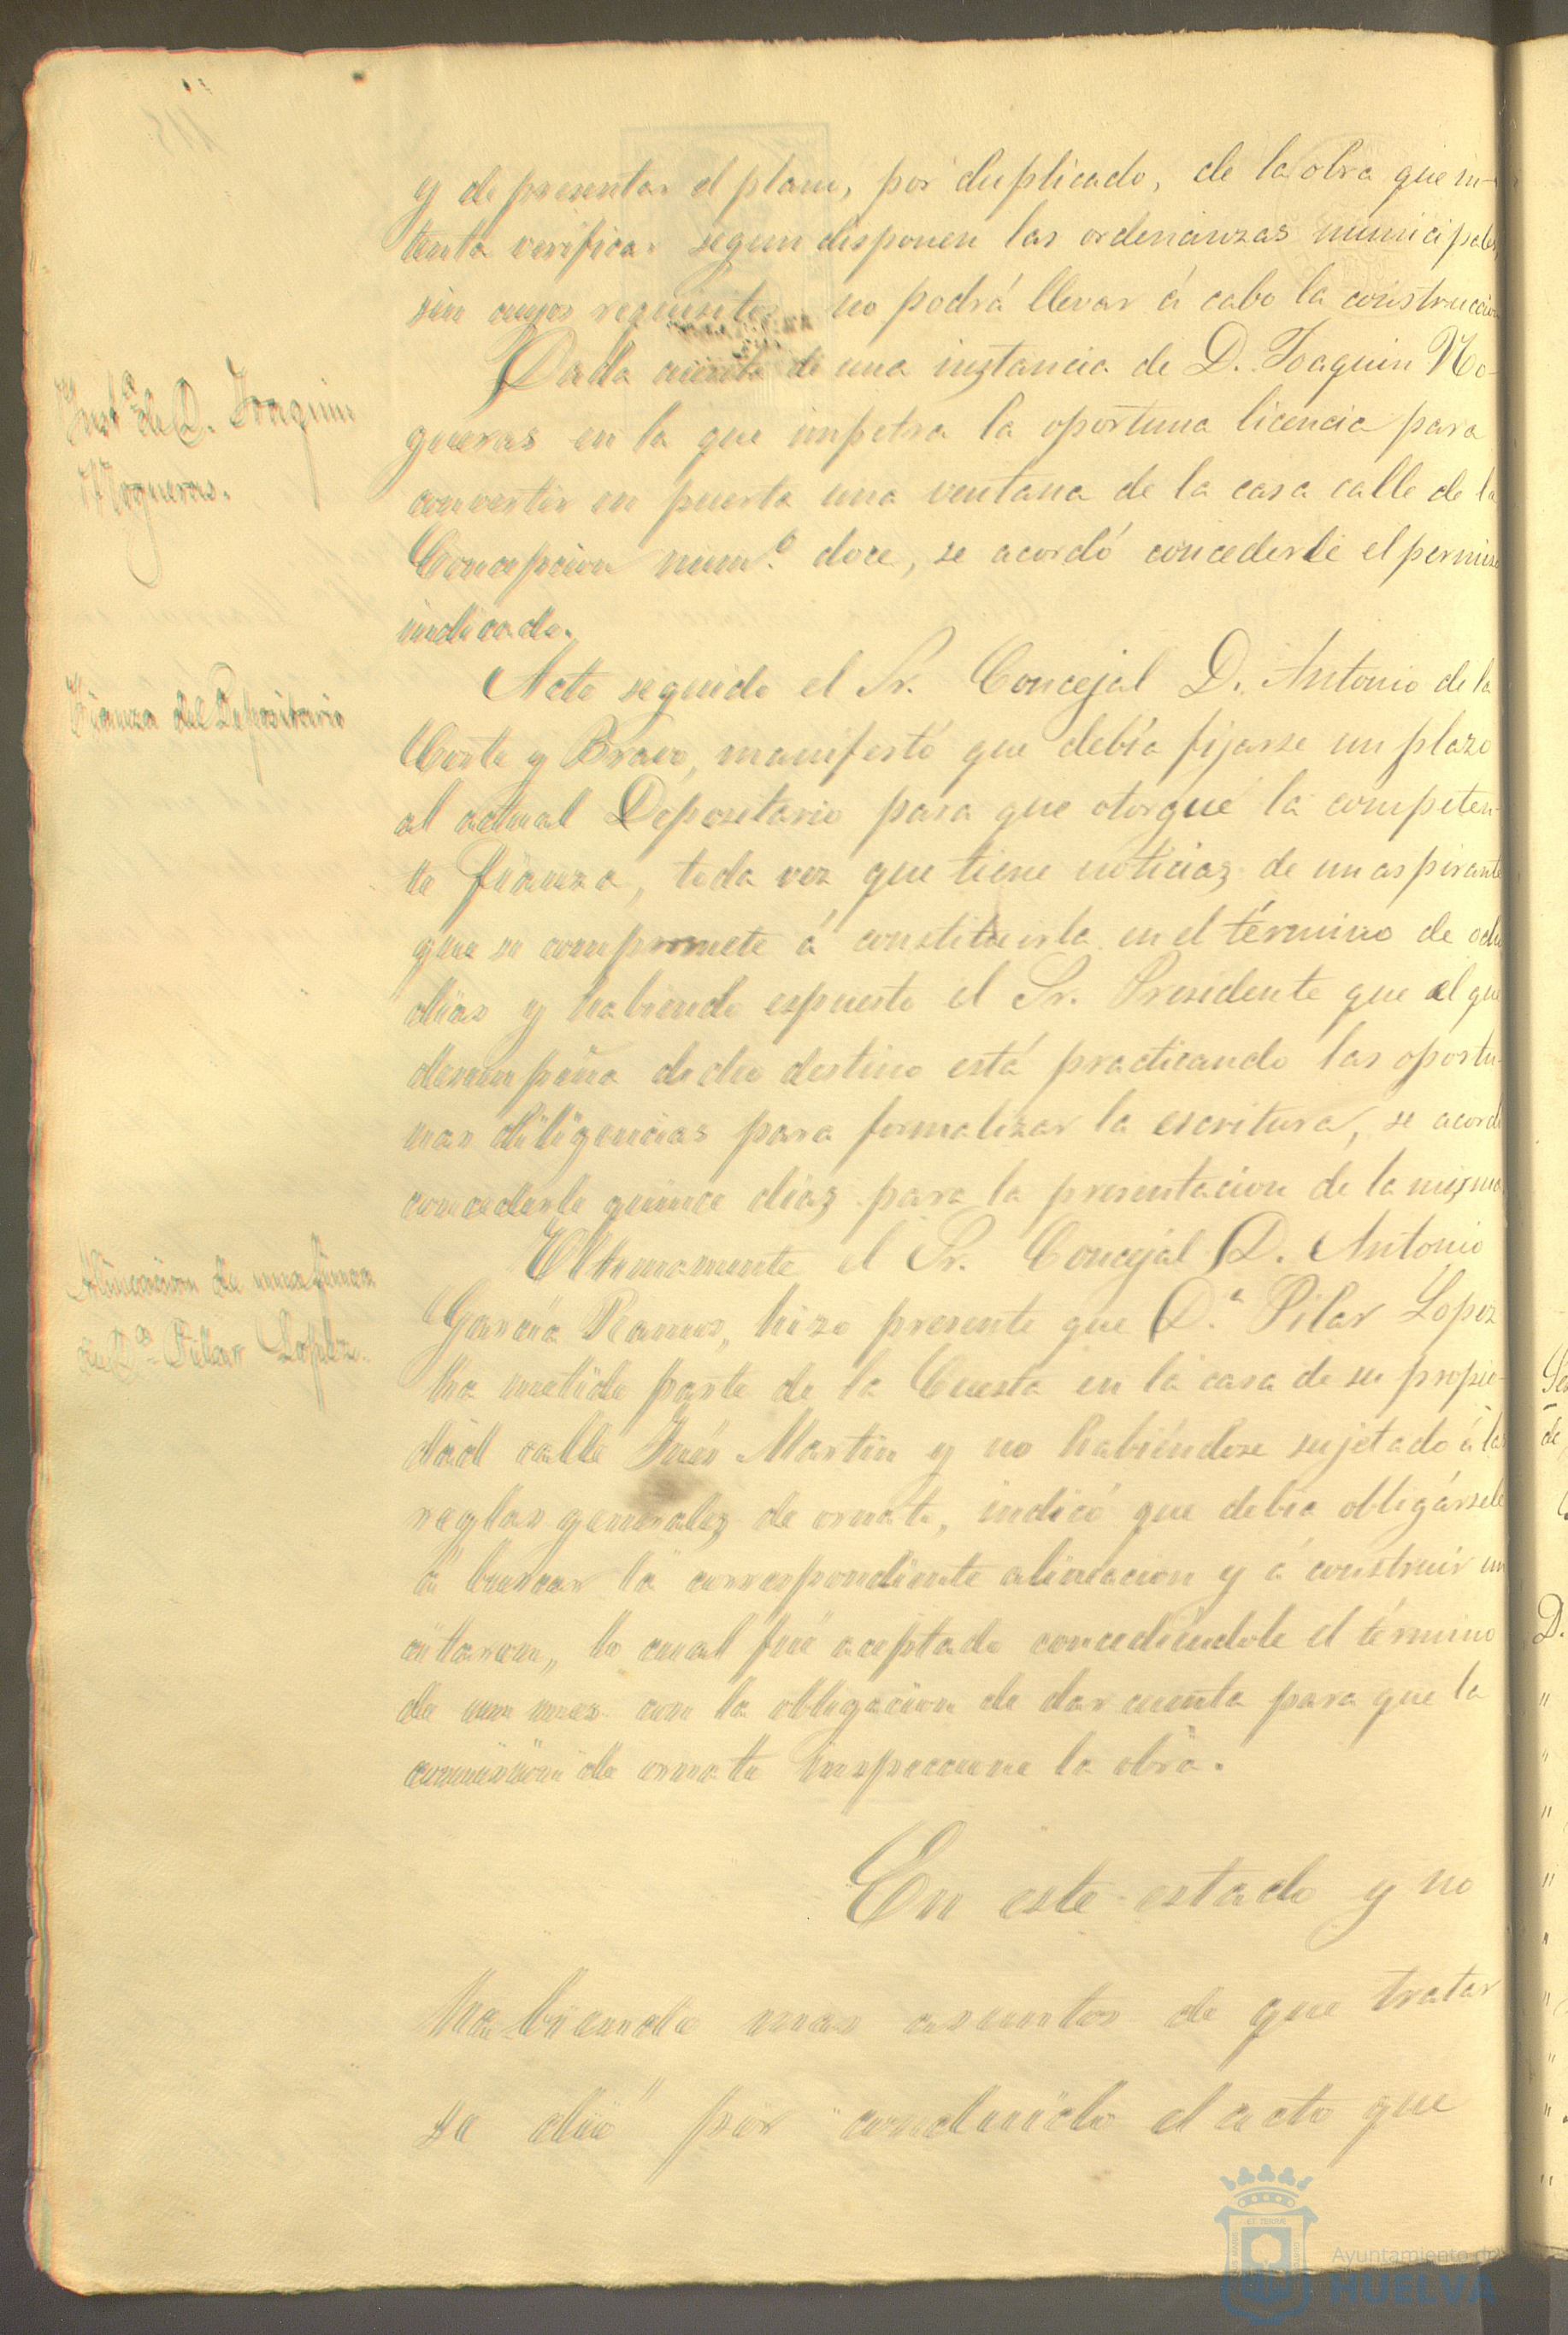 y de presentar el plano, por duplicado, de la obra que in-
tenta verificar segun disponen las ordenanzas municipales,
sin cuyos requisitos no podrá llevar á cabo la construccion
Inst.ª de D. Joaquin
Nogueras.
Dada cuenta de una instancia de D. Joaquin No-
gueras en la que impetra la oportuna licencia para
convertir en puerta una ventana de la casa calle de la
Concepcion num.º doce, se acordó concederle el permiso
indicado.
Fianza del Depositario
Acto seguido el Sr. Concejal D. Antonio de la
Corte y Bravo, manifestó que debía fijarse un plazo
al actual Depositario para que otorgue la competen-
te fianza, toda vez que tiene noticias de un aspirante
que se compromete á constituirla en el término de ocho
dias y habiendo espuesto el Sr. Presidente que el que
desempeña dicho destino está practicando las oportu-
nas diligencias para formalizar la escritura, se acordó
concederle quince dias para la presentacion de la misma
Alineacion de una finca
de D.ª Pilar Lopez.
Ultimamente el Sr. Concejal D. Antonio
Garcia Ramos, hizo presente que D.ª Pilar Lopez
ha metido parte de la Cuesta en la casa de su propie-
dad calle Inés Martin y no habiéndose sujetado á las
reglas generales de ornato, indicó que debia obligársele
á buscar la correspondiente alineacion y á construir un
citaron, lo cual fué aceptado concediéndole el término
de un mes con la obligacion de dar cuenta para que la
comision de ornato inspeccione la obra.
En este estado y no
habiendo mas asuntos de que tratar
se dió por concluido el acto que
Ayuntamiento de
HUELVA